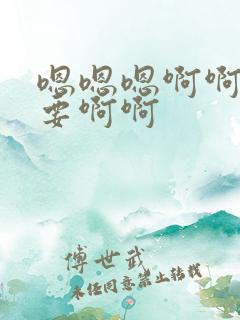 嗯嗯嗯啊啊
要啊啊
傅世武
未经同意禁止转载